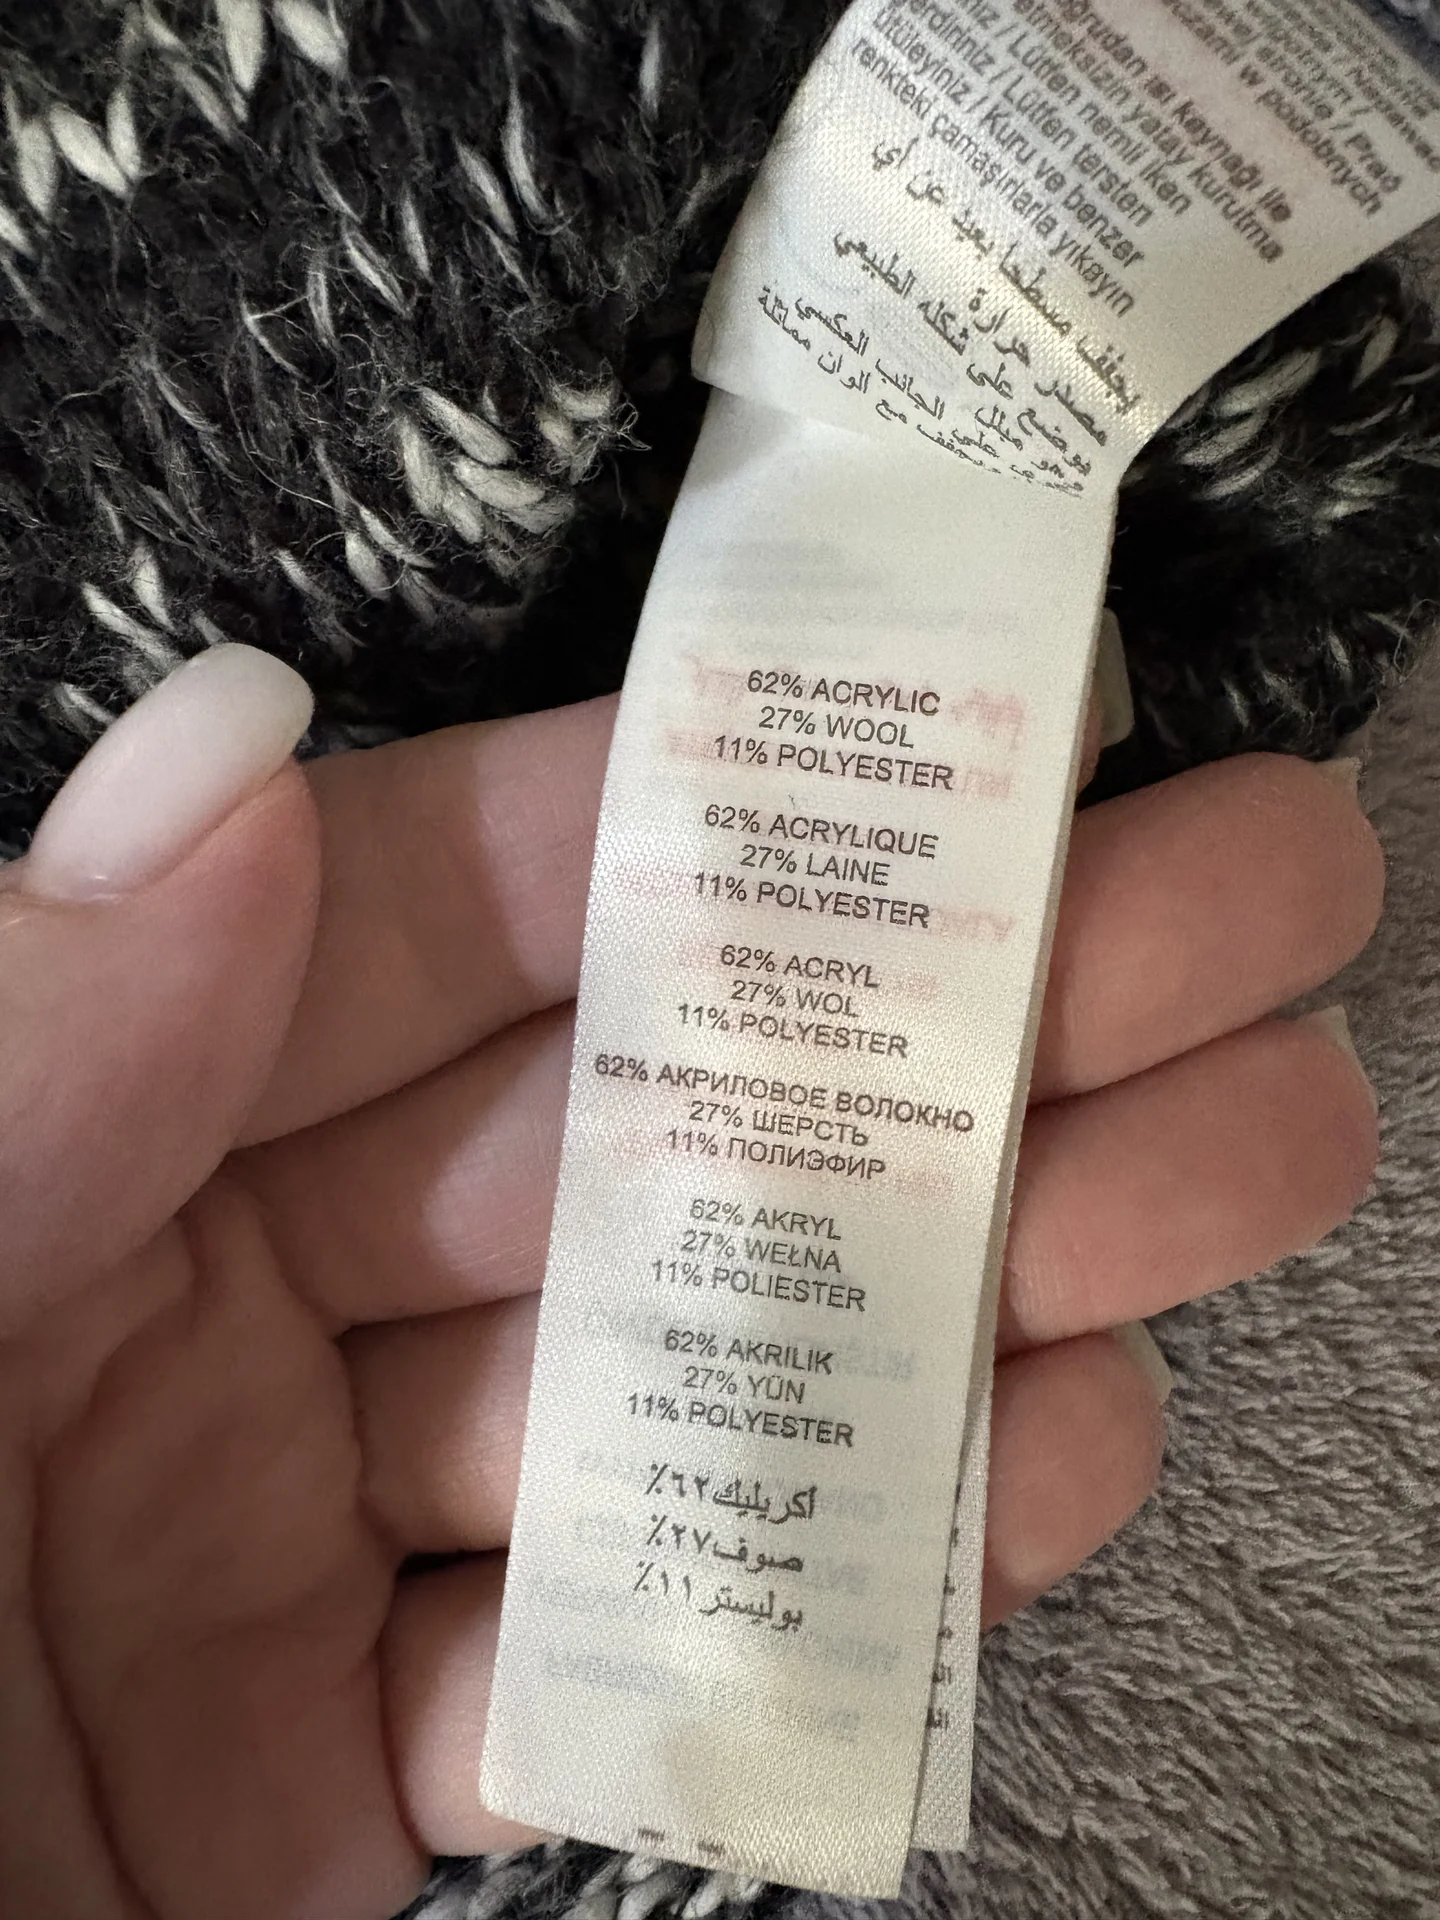 doğrudan ısı kaynağı ile
etmeksizin yatay kurutma
/ Lütfen nemli iken
/ Lütfen tersten
ütüleyiniz / Kuru ve benzer
renkteki çamaşırlarla yıkayın
يجفف مسطحا بعيد عن أي
مصدر حرارة
يوضع على شكله الطبيعي
وهو مبلل
على الجانب العكسي
مع الوان مماثلة
62% ACRYLIC
27% WOOL
11% POLYESTER
62% ACRYLIQUE
27% LAINE
11% POLYESTER
62% ACRYL
27% WOL
11% POLYESTER
62% АКРИЛОВОЕ ВОЛОКНО
27% ШЕРСТЬ
11% ПОЛИЭФИР
62% AKRYL
27% WEŁNA
11% POLIESTER
62% AKRILIK
27% YÜN
11% POLYESTER
أكريليك٦٢٪
صوف٢٧٪
بوليستر ١١٪